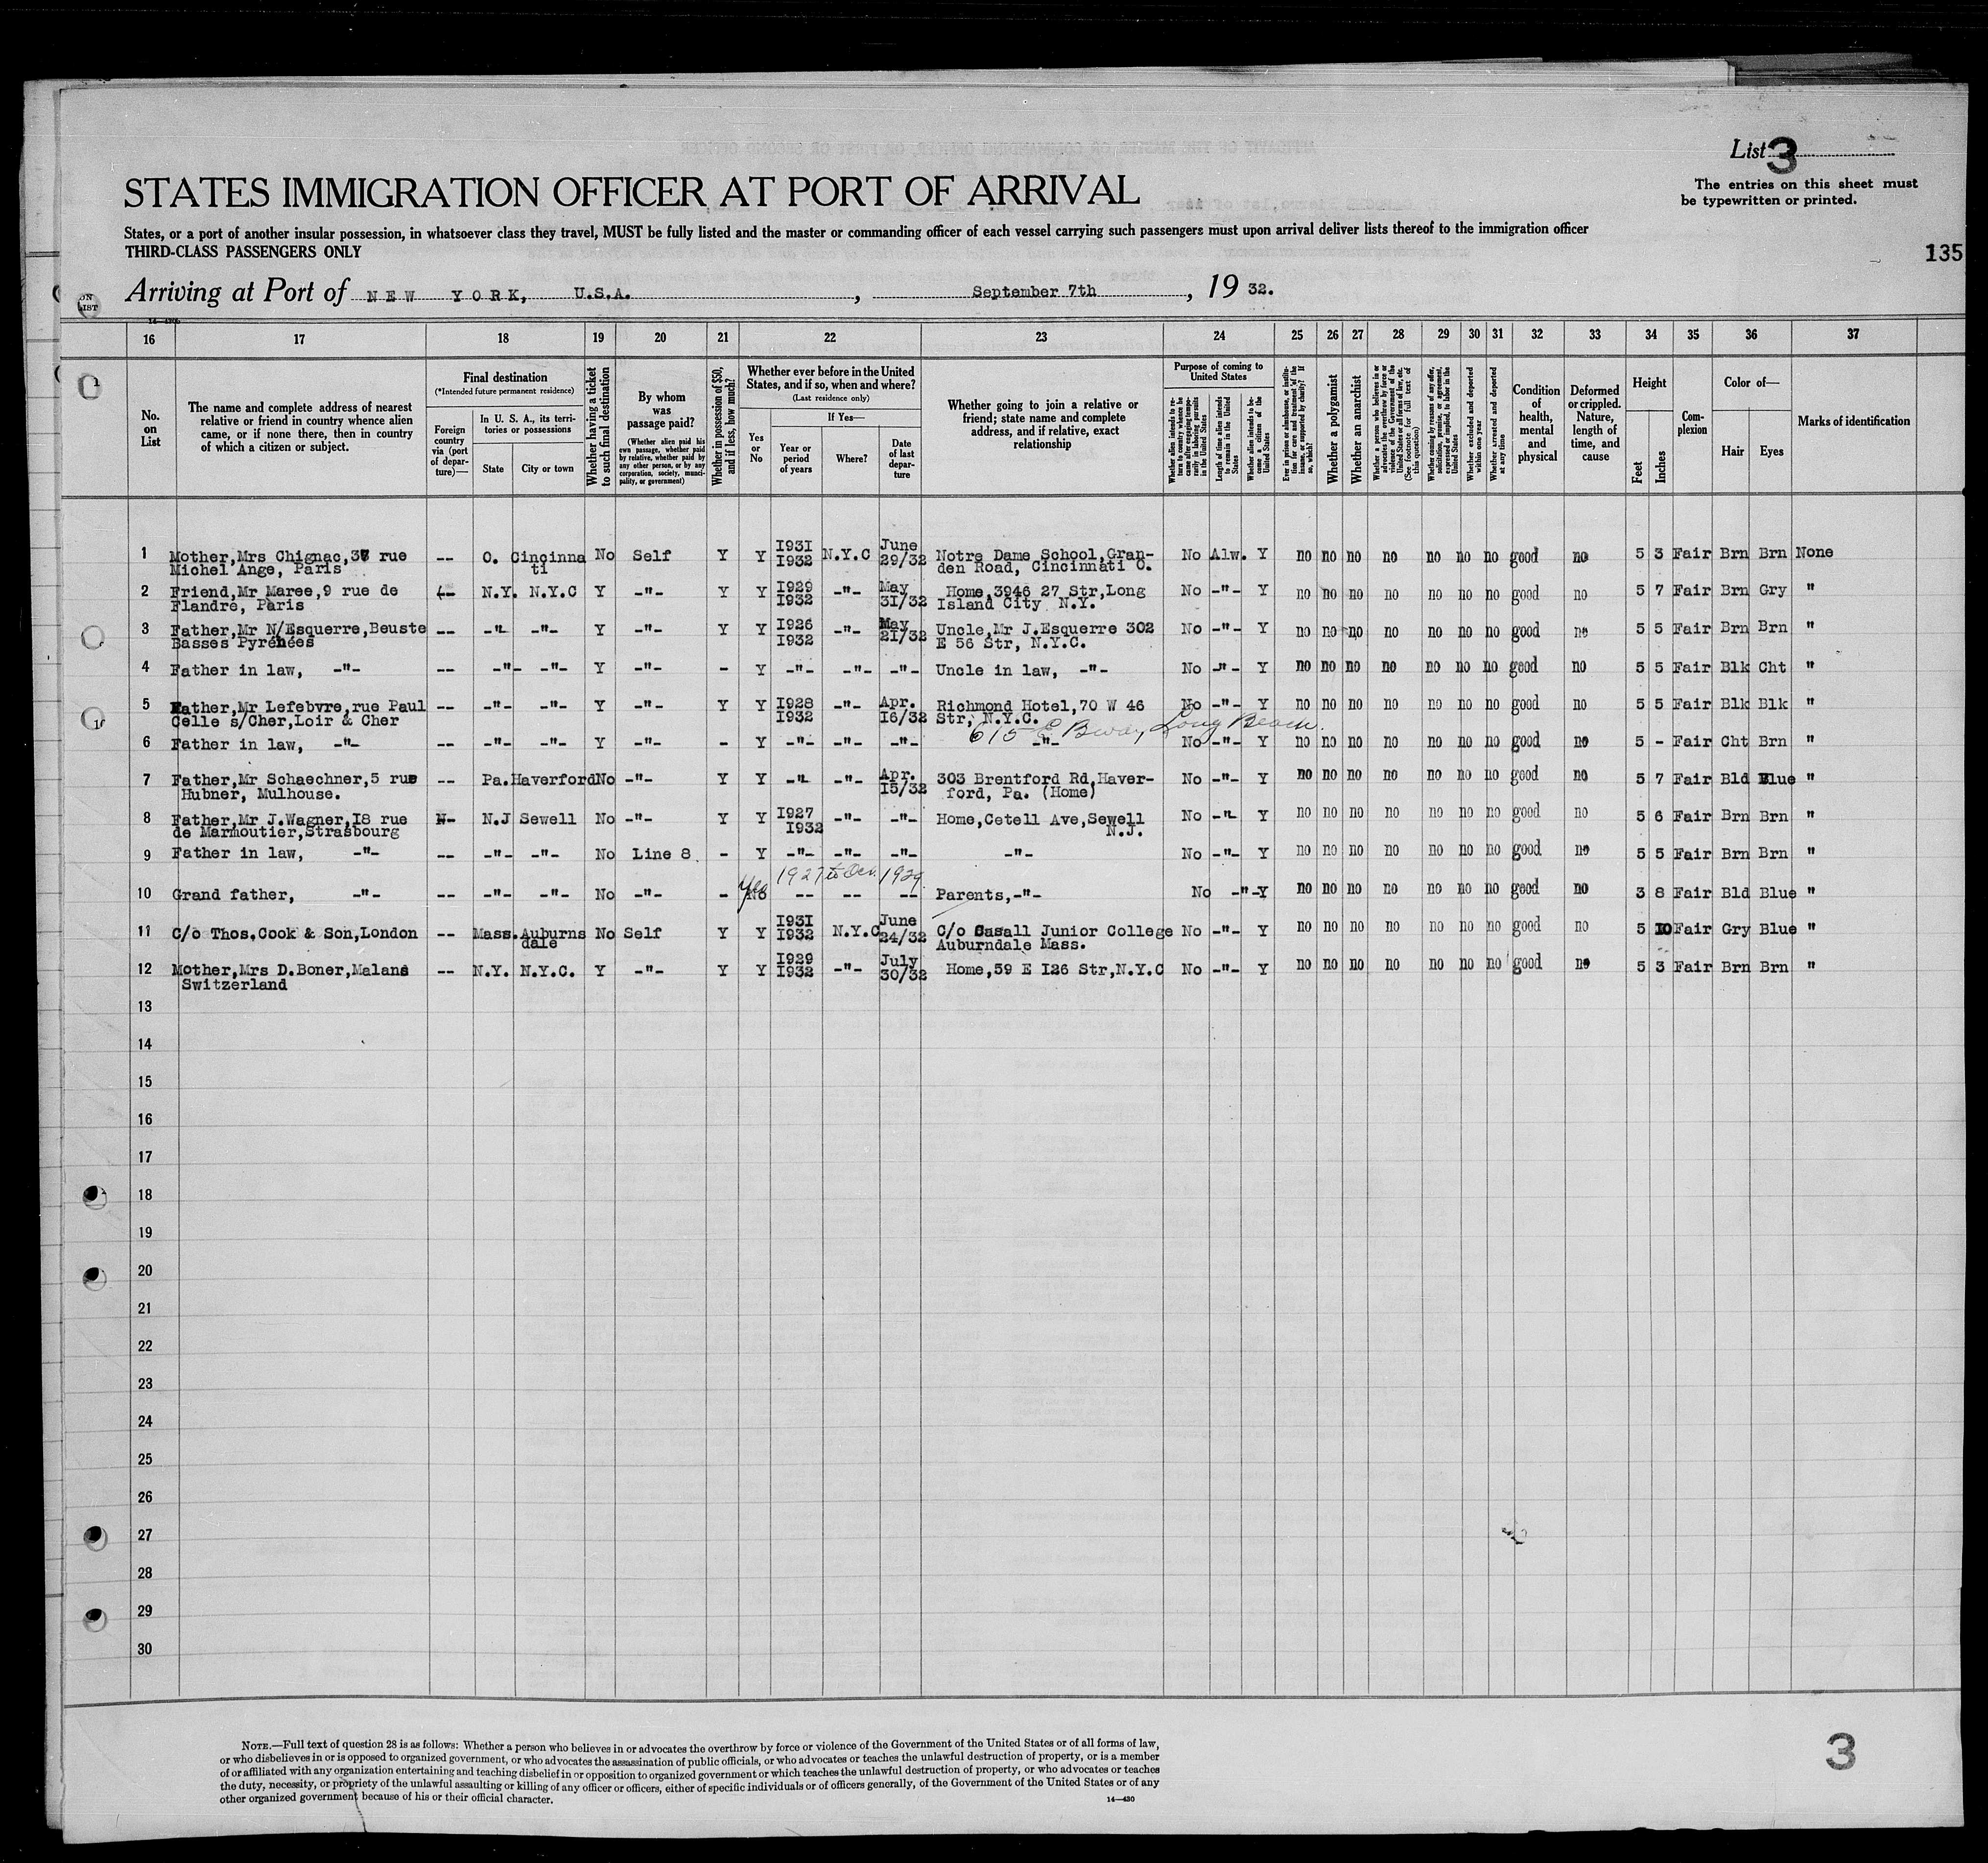 List 3
The entries on this sheet must
be typewritten or printed.
STATES IMMIGRATION OFFICER AT PORT OF ARRIVAL
States, or a port of another insular possession, in whatsoever class they travel, MUST be fully listed and the master or commanding officer of each vessel carrying such passengers must upon arrival deliver lists thereof to the immigration officer
THIRD-CLASS PASSENGERS ONLY
135
Arriving at Port of NEW YORK, U.S.A. , September 7th , 19 32.
16 17 18 19 20 21 22 23 24 25 26 27 28 29 30 31 32 33 34 35 36 37
No. on List
The name and complete address of nearest relative or friend in country whence alien came, or if none there, then in country of which a citizen or subject.
Final destination
(*Intended future permanent residence)
Foreign country via (port of departure)—
In U. S. A., its territories or possessions
State
City or town
Whether having a ticket to such final destination
By whom was passage paid?
(Whether alien paid his own passage, whether paid by relative, whether paid by any other person, or by any corporation, society, municipality, or government)
Whether in possession of $50, and if less, how much?
Whether ever before in the United States, and if so, when and where?
(Last residence only)
Yes or No
If Yes—
Year or period of years
Where?
Date of last departure
Whether going to join a relative or friend; state name and complete address, and if relative, exact relationship
Purpose of coming to United States
Length of time alien intends to remain in the United States
Whether alien intends to become a citizen of the United States
Whether a polygamist
Whether an anarchist
Whether excluded and deported within one year
Whether arrested and deported at any time
Condition of health, mental and physical
Deformed or crippled. Nature, length of time, and cause
Height
Feet
Inches
Complexion
Color of—
Hair
Eyes
Marks of identification
1 Mother,Mrs Chignac,37 rue -- O. Cincinna No Self Y Y I931 N.Y.C June Notre Dame School,Gran- No Alw. Y no no no no no no no good no 5 3 Fair Brn Brn None
Michel Ange, Paris ti I932 29/32 den Road, Cincinnati O.
2 Friend,Mr Maree,9 rue de -- N.Y. N.Y.C Y -"- Y Y I929 -"- May Home,3946 27 Str,Long No -"- Y no no no no no no no good no 5 7 Fair Brn Gry "
Flandre, Paris I932 31/32 Island City N.Y.
3 Father,Mr N/Esquerre,Beuste -- -"- -"- Y -"- Y Y I926 -"- May Uncle,Mr J.Esquerre 302 No -"- Y no no no no no no no good no 5 5 Fair Brn Brn "
Basses Pyrénées I932 21/32 E 56 Str, N.Y.C.
4 Father in law, -"- -- -"- -"- Y -"- - Y -"- -"- -"- Uncle in law, -"- No -"- Y no no no no no no no good no 5 5 Fair Blk Cht "
5 Father,Mr Lefebvre,rue Paul -- -"- -"- Y -"- Y Y I928 -"- Apr. Richmond Hotel,70 W 46 No -"- Y no no no no no no no good no 5 5 Fair Blk Blk "
Celle s/Cher,Loir & Cher I932 I6/32 Str, N.Y.C.
615 E Bway, Long Beach.
6 Father in law, -"- -- -"- -"- Y -"- - Y -"- -"- -"- -"- No -"- Y no no no no no no no good no 5 - Fair Cht Brn "
7 Father,Mr Schaechner,5 rue -- Pa. Haverford No -"- Y Y -"- -"- Apr. 303 Brentford Rd,Haver- No -"- Y no no no no no no no good no 5 7 Fair Bld Blue "
Hubner, Mulhouse. I5/32 ford, Pa. (Home)
8 Father,Mr J.Wagner,I8 rue -- N.J Sewell No -"- Y Y I927 -"- -"- Home,Cetell Ave,Sewell No -"- Y no no no no no no no good no 5 6 Fair Brn Brn "
de Marmoutier,Strasbourg I932 N.J.
9 Father in law, -"- -- -"- -"- No Line 8. - Y -"- -"- -"- -"- No -"- Y no no no no no no no good no 5 5 Fair Brn Brn "
Yes 1927 to Dec. 1929
10 Grand father, -"- -- -"- -"- No -"- - No -- -- -- Parents,-"- No -"- Y no no no no no no no good no 3 8 Fair Bld Blue "
11 C/o Thos.Cook & Son,London -- Mass. Auburns No Self Y Y I931 N.Y.C June C/o Casall Junior College No -"- Y no no no no no no no good no 5 10 Fair Gry Blue "
dale I932 24/32 Auburndale Mass.
12 Mother,Mrs D.Boner,Malans -- N.Y. N.Y.C. Y -"- Y Y I929 -"- July Home,59 E I26 Str,N.Y.C No -"- Y no no no no no no no good no 5 3 Fair Brn Brn "
Switzerland I932 30/32
13
14
15
16
17
18
19
20
21
22
23
24
25
26
27
28
29
30
NOTE.—Full text of question 28 is as follows: Whether a person who believes in or advocates the overthrow by force or violence of the Government of the United States or of all forms of law,
or who disbelieves in or is opposed to organized government, or who advocates the assassination of public officials, or who advocates or teaches the unlawful destruction of property, or is a member
of or affiliated with any organization entertaining and teaching disbelief in or opposition to organized government or which teaches the unlawful destruction of property, or who advocates or teaches
the duty, necessity, or propriety of the unlawful assaulting or killing of any officer or officers, either of specific individuals or of officers generally, of the Government of the United States or of any
other organized government because of his or their official character.
14—430
3